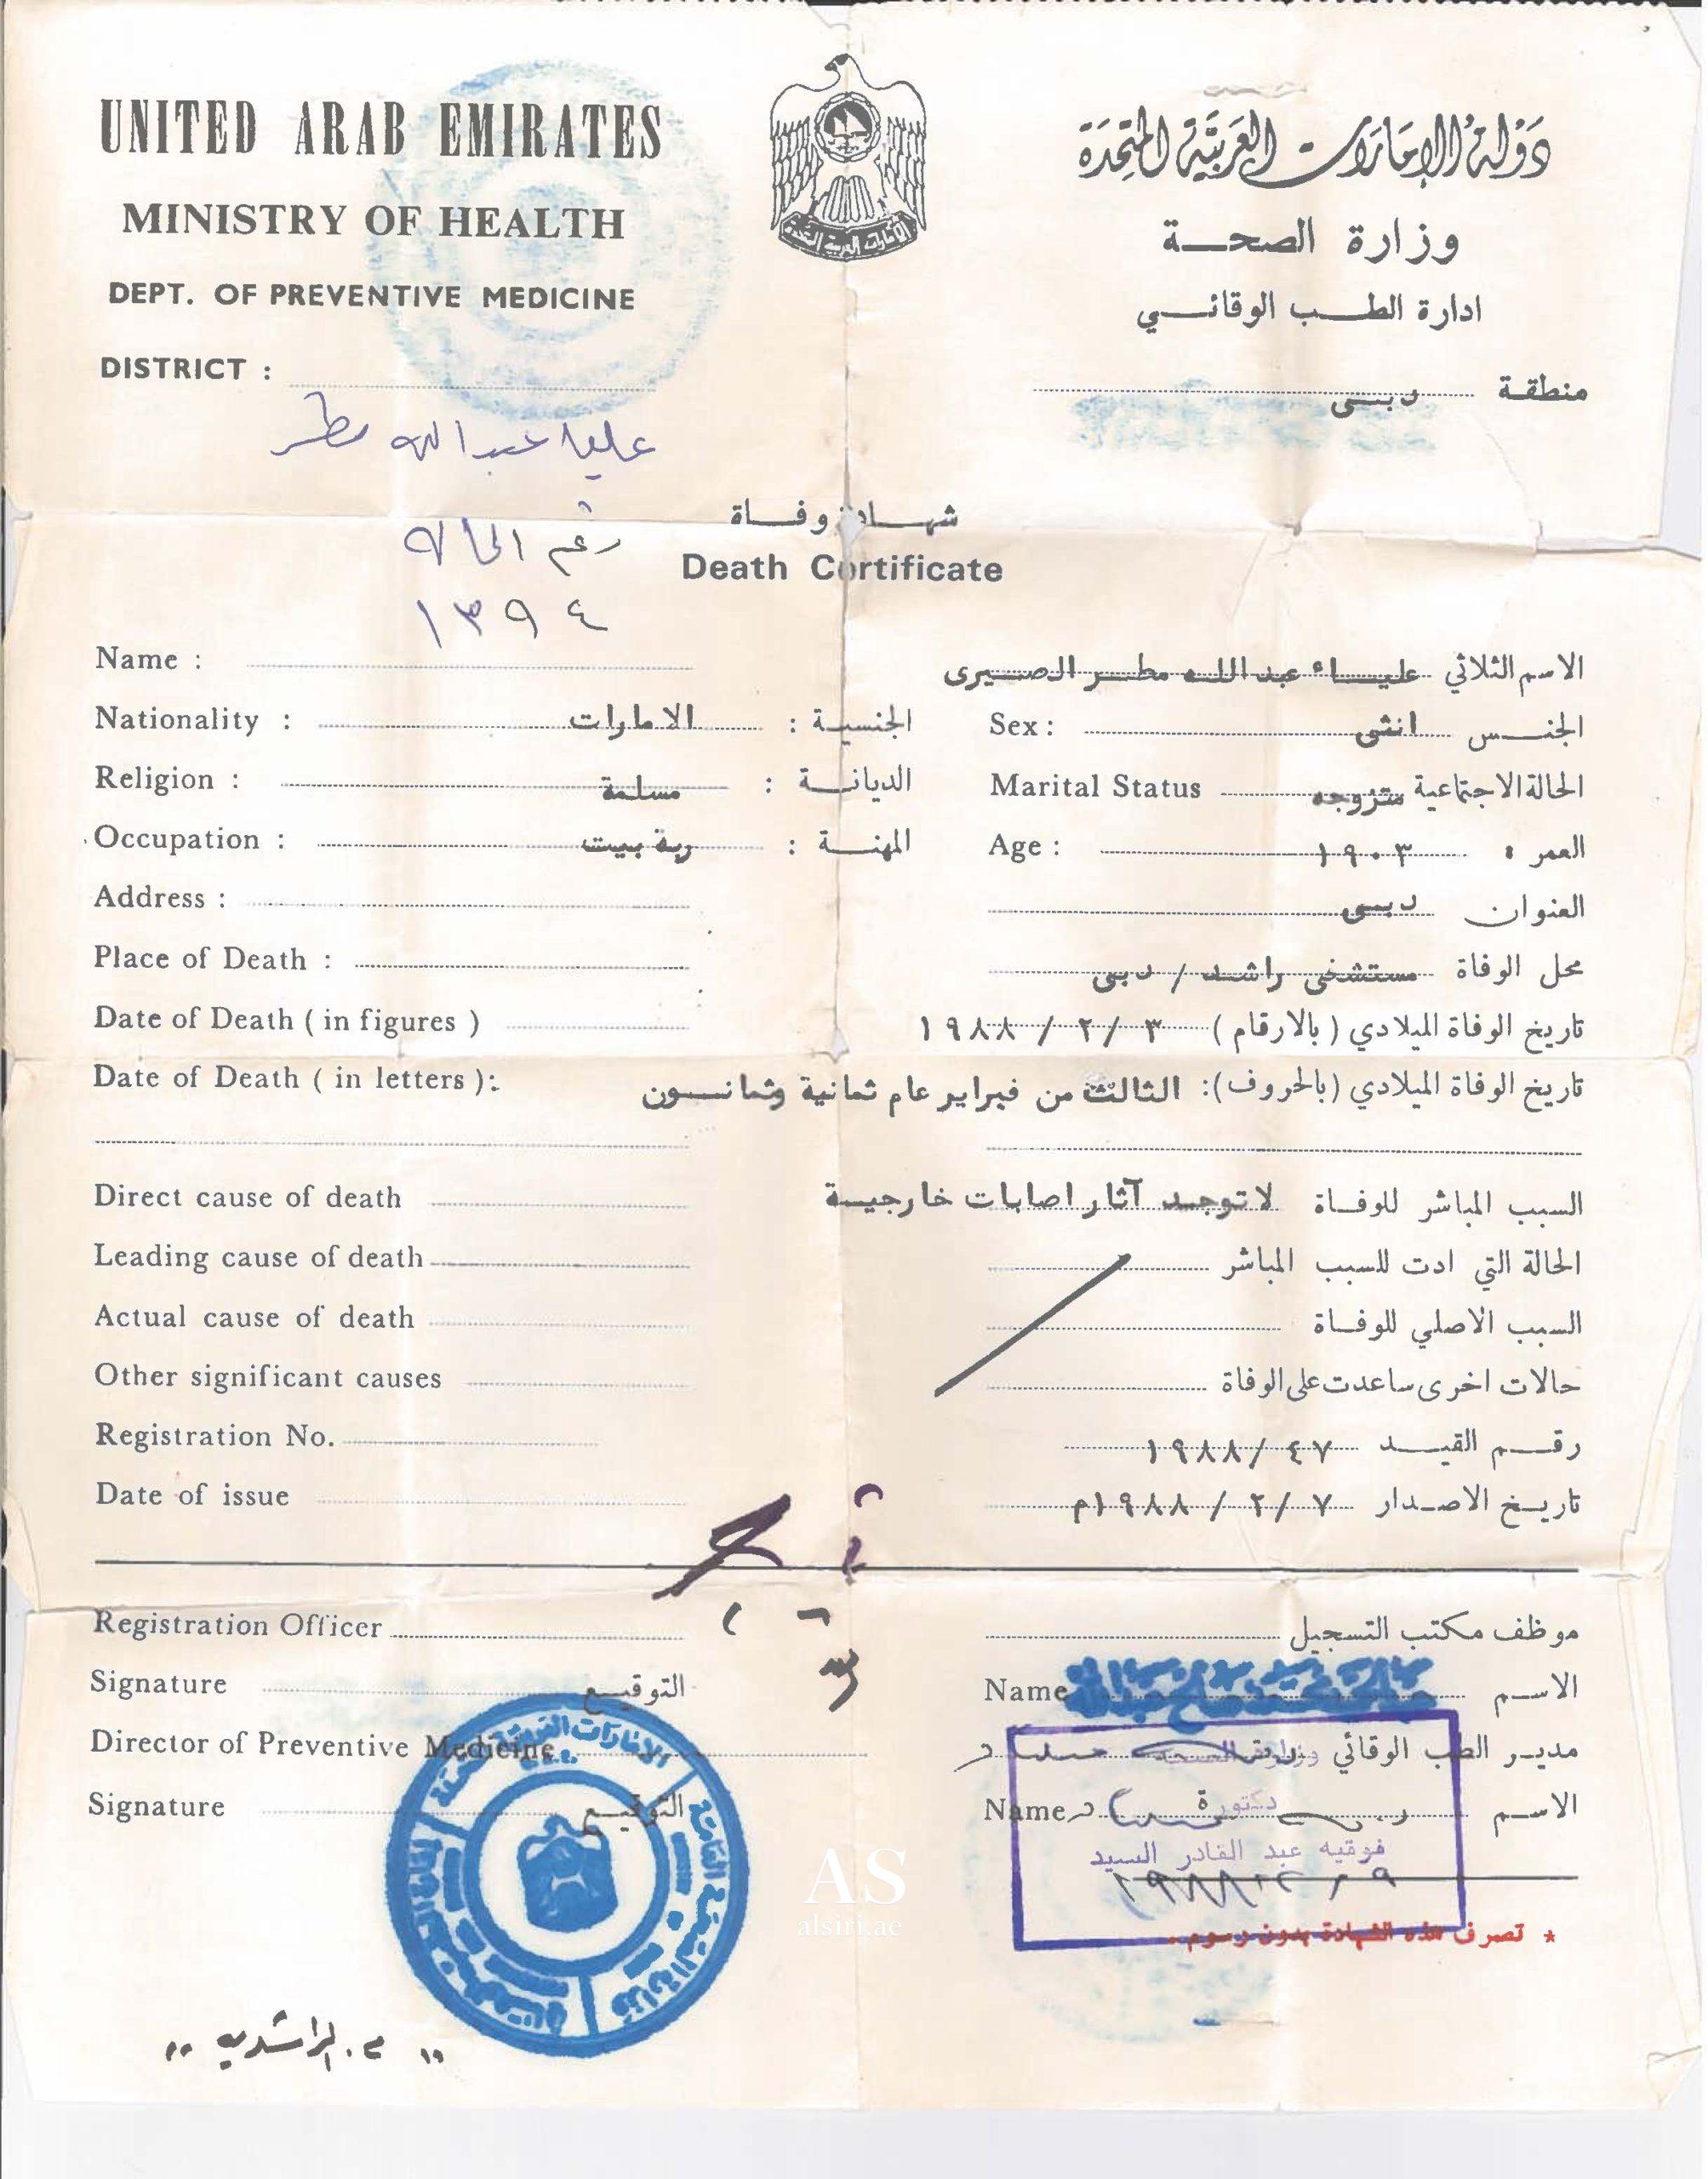 UNITED ARAB EMIRATES
دولة الإمارات العربية المتحدة
MINISTRY OF HEALTH
وزارة الصحـــة
DEPT. OF PREVENTIVE MEDICINE
ادارة الطـــب الوقائـــي
DISTRICT :
منطقة دبـى
عليا عبدالله مطر
شهـــادة وفـــاة
رقم الحاله
Death Certificate
١٣٩٤
Name :
الاسم الثلاثي عليـــاء عبدالله مطـــر الصـــيرى
Nationality : الامارات الجنسية :
Sex : انثى الجنـــس
Religion : مسلمة الديانـــة :
Marital Status متزوجه الحالة الاجتماعية
Occupation : ربة بيت المهنـــة :
Age : ١٩٠٣ العمر :
Address :
العنوان دبـى
Place of Death :
محل الوفاة مستشفى راشـد / دبى
Date of Death ( in figures )
تاريخ الوفاة الميلادي ( بالارقام ) ٣ / ٢ / ١٩٨٨
Date of Death ( in letters ):
تاريخ الوفاة الميلادي (بالحروف): الثالث من فبراير عام ثمانية وثمانـــون
Direct cause of death
السبب المباشر للوفـاة لا توجـد آثار اصابات خارجيـــة
Leading cause of death
الحالة التي ادت للسبب المباشر
Actual cause of death
السبب الاصلي للوفـاة
Other significant causes
حالات اخرى ساعدت على الوفاة
Registration No.
رقـــم القيـــد ٤٧ / ١٩٨٨
Date of issue
تاريـخ الاصـدار ٧ / ٢ / ١٩٨٨م
Registration Officer
موظف مكتب التسجيل
Signature التوقيـــع
Name الاســـم
Director of Preventive Medicine
مديـر الطب الوقائي
وزارة الصحـــة
Signature التوقيـــع
Name الاســـم
دكتورة
فوقيه عبد القادر السيد
AS
alsiri.ae
* تصرف هذه الشهادة بدون رسوم .
م. الراشديه